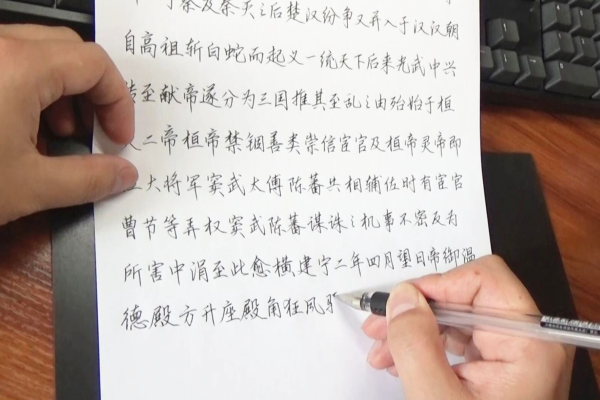 秦及秦灭之后楚汉纷争又并入于汉汉朝
自高祖斩白蛇而起义一统天下后来光武中兴
转至献帝遂分为三国推其至乱之由殆始于桓
二帝桓帝禁锢善类崇信宦官及桓帝灵帝即
大将军窦武太傅陈蕃共相辅佐时有宦官
曹节等弄权窦武陈蕃谋诛之机事不密反为
所害中涓至此愈横建宁二年四月望日帝御温
德殿方升座殿角狂风